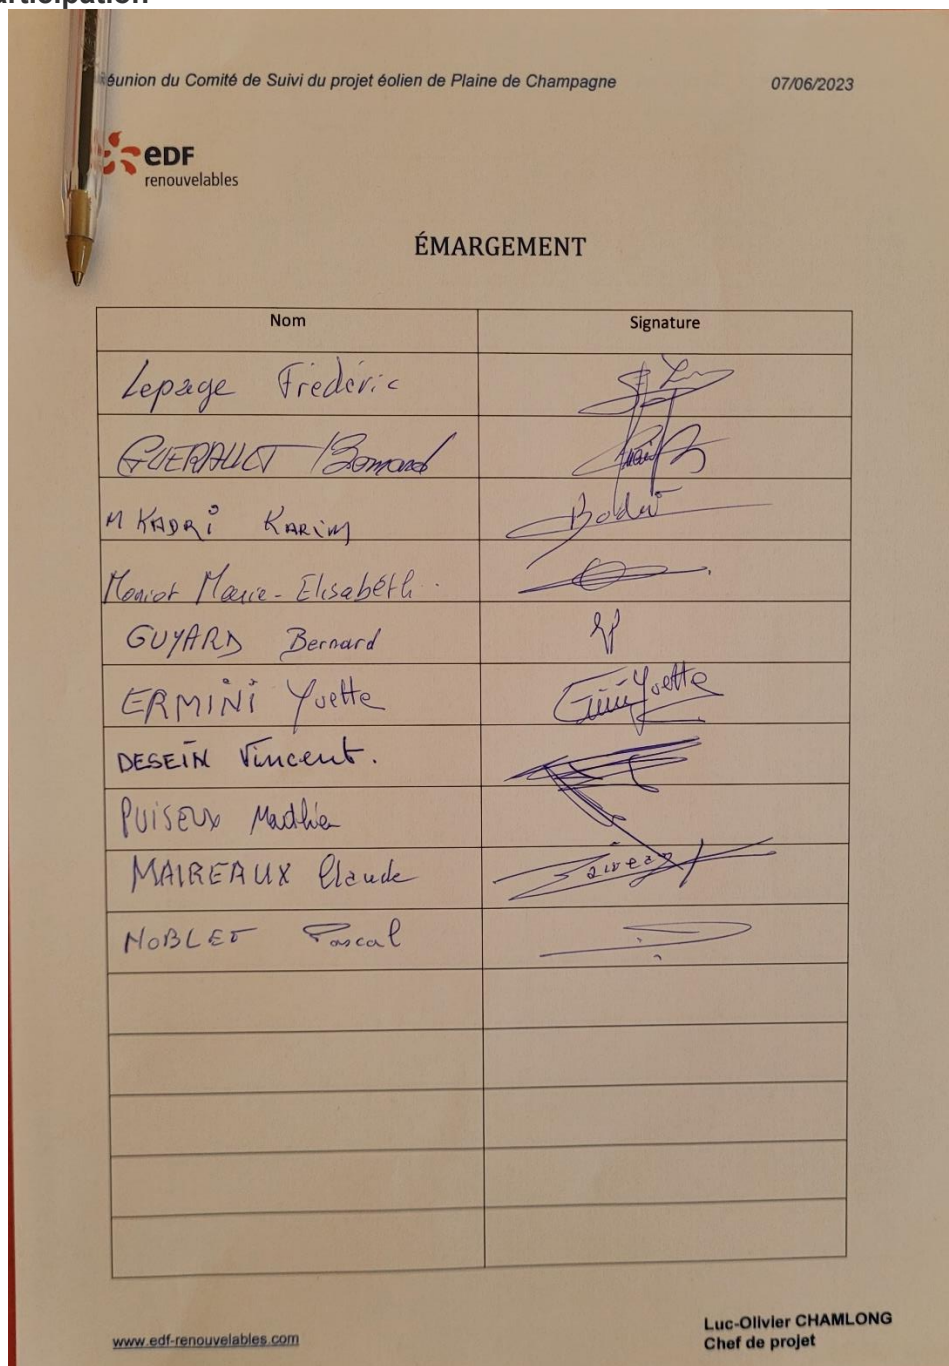 articipation
éunion du Comité de Suivi du projet éolien de Plaine de Champagne 07/06/2023
eDF
renouvelables
ÉMARGEMENT
Nom Signature
Lepage Frédéric
GUERAULT Bernard
M KADRi KARiM
Moniot Marie-Elisabéth.
GUYARD Bernard
ERMiNi Yvette Yvette
DESEiN Vincent.
PUiSEUX Mathieu
MAIREAUX Claude
NOBLET Pascal
www.edf-renouvelables.com
Luc-Olivier CHAMLONG
Chef de projet